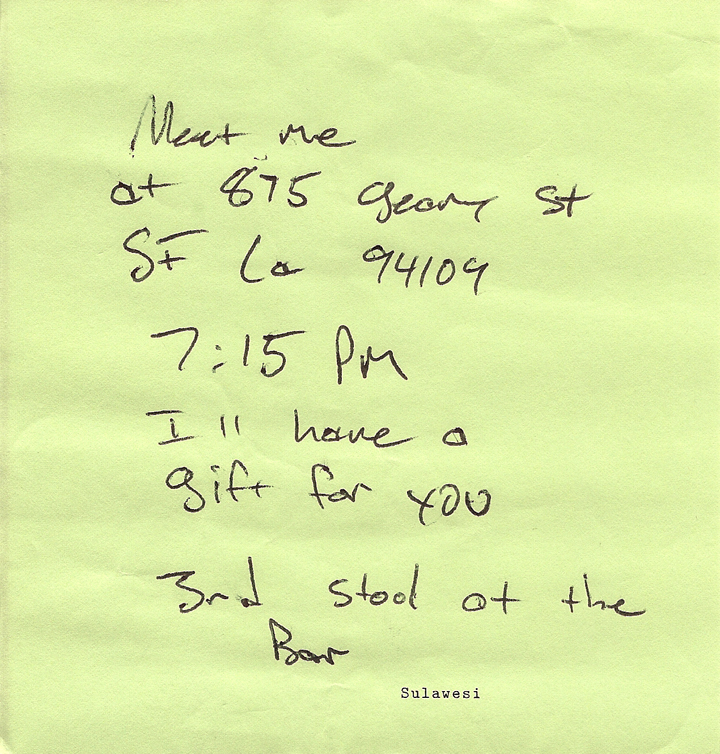 Meet me
at 875 Geary St
SF Ca 94109
7:15 PM
I'll have a
gift for you
3rd stool at the
Bar
Sulawesi